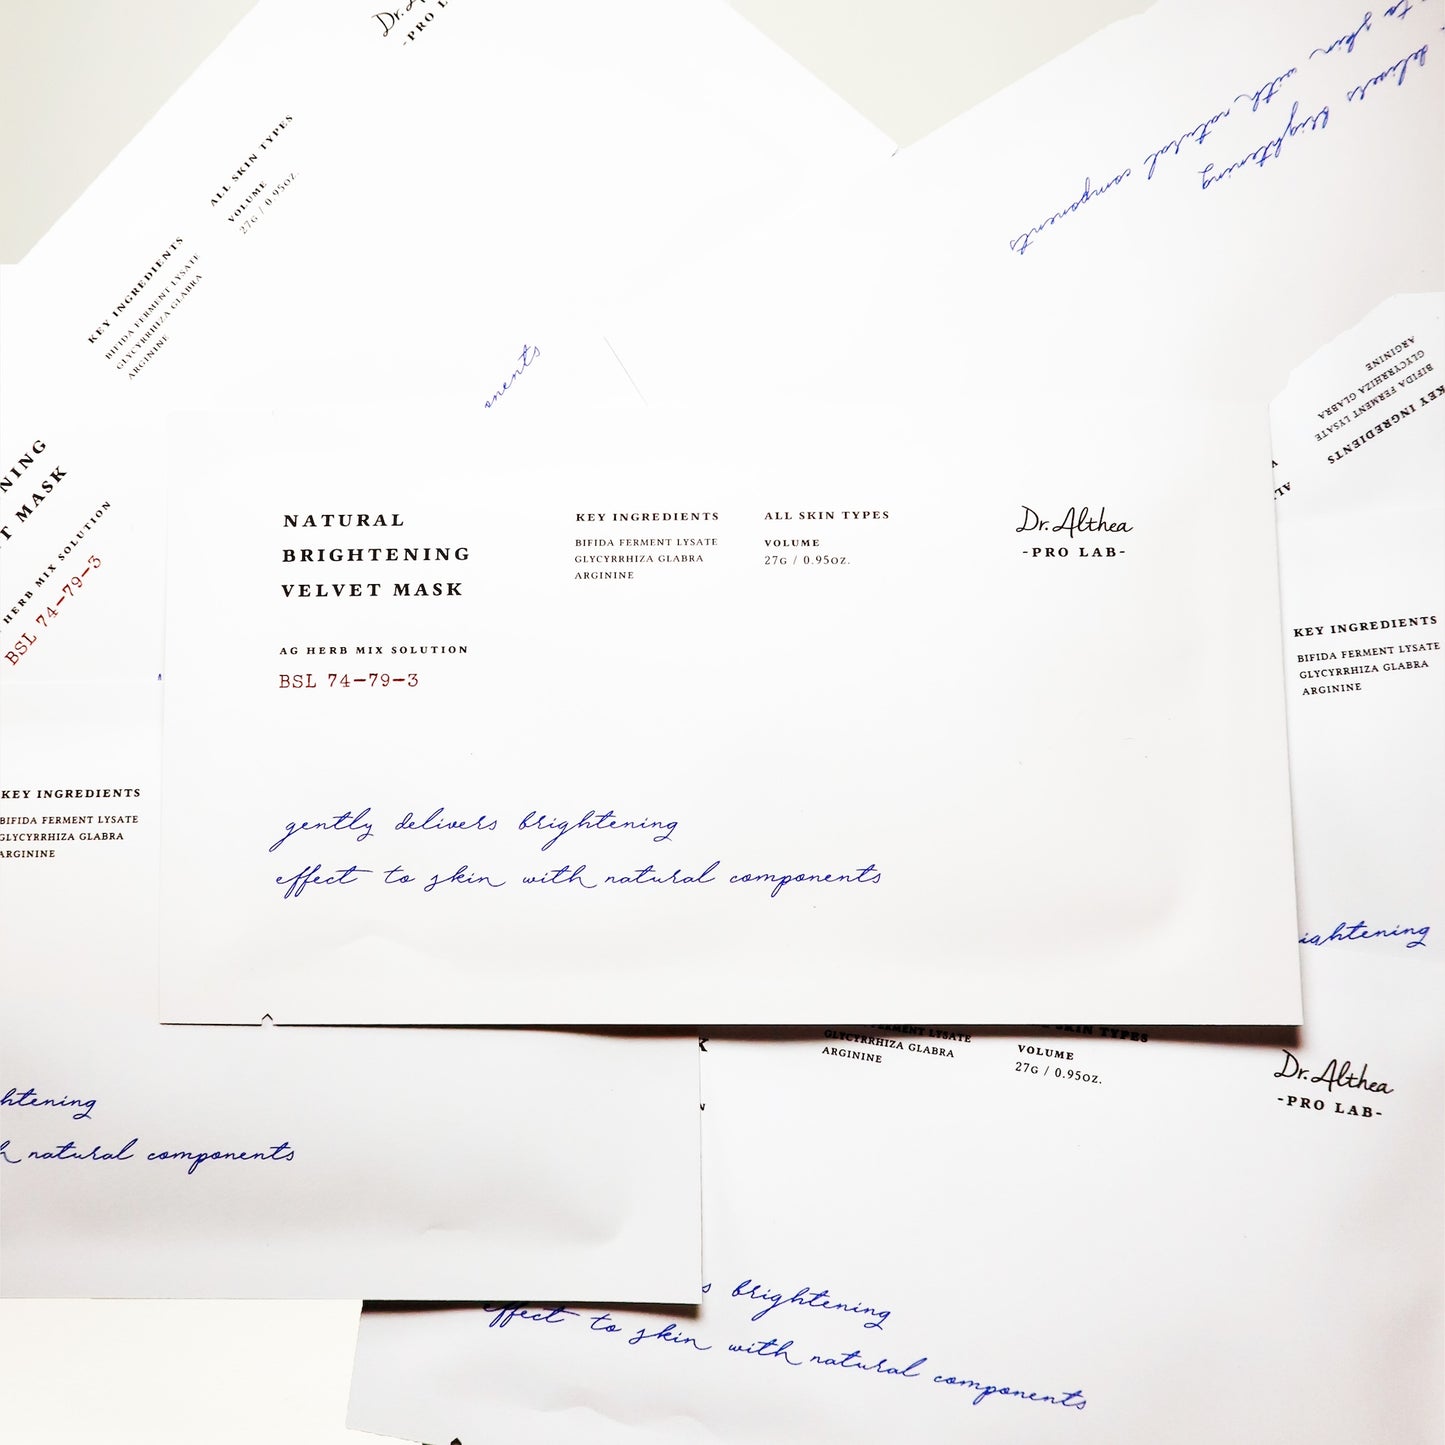 Dr.
-PRO L
ALL SKIN TYPES
VOLUME
27G / 0.95OZ.
KEY INGREDIENTS
BIFIDA FERMENT LYSATE
GLYCYRRHIZA GLABRA
ARGININE
NING
T MASK
HERB MIX SOLUTION
BSL 74-79-3
delivers brightening
to skin with natural components
onents
KEY INGREDIENTS
BIFIDA FERMENT LYSATE
GLYCYRRHIZA GLABRA
ARGININE
NATURAL
BRIGHTENING
VELVET MASK
AG HERB MIX SOLUTION
BSL 74-79-3
KEY INGREDIENTS
BIFIDA FERMENT LYSATE
GLYCYRRHIZA GLABRA
ARGININE
ALL SKIN TYPES
VOLUME
27G / 0.95OZ.
Dr. Althea
-PRO LAB-
gently delivers brightening
effect to skin with natural components
KEY INGREDIENTS
BIFIDA FERMENT LYSATE
GLYCYRRHIZA GLABRA
ARGININE
ightening
KEY INGREDIENTS
BIFIDA FERMENT LYSATE
GLYCYRRHIZA GLABRA
ARGININE
htening
h natural components
FERMENT LYSATE
GLYCYRRHIZA GLABRA
ARGININE
SKIN TYPES
VOLUME
27G / 0.95OZ.
Dr. Althea
-PRO LAB-
s brightening
effect to skin with natural components